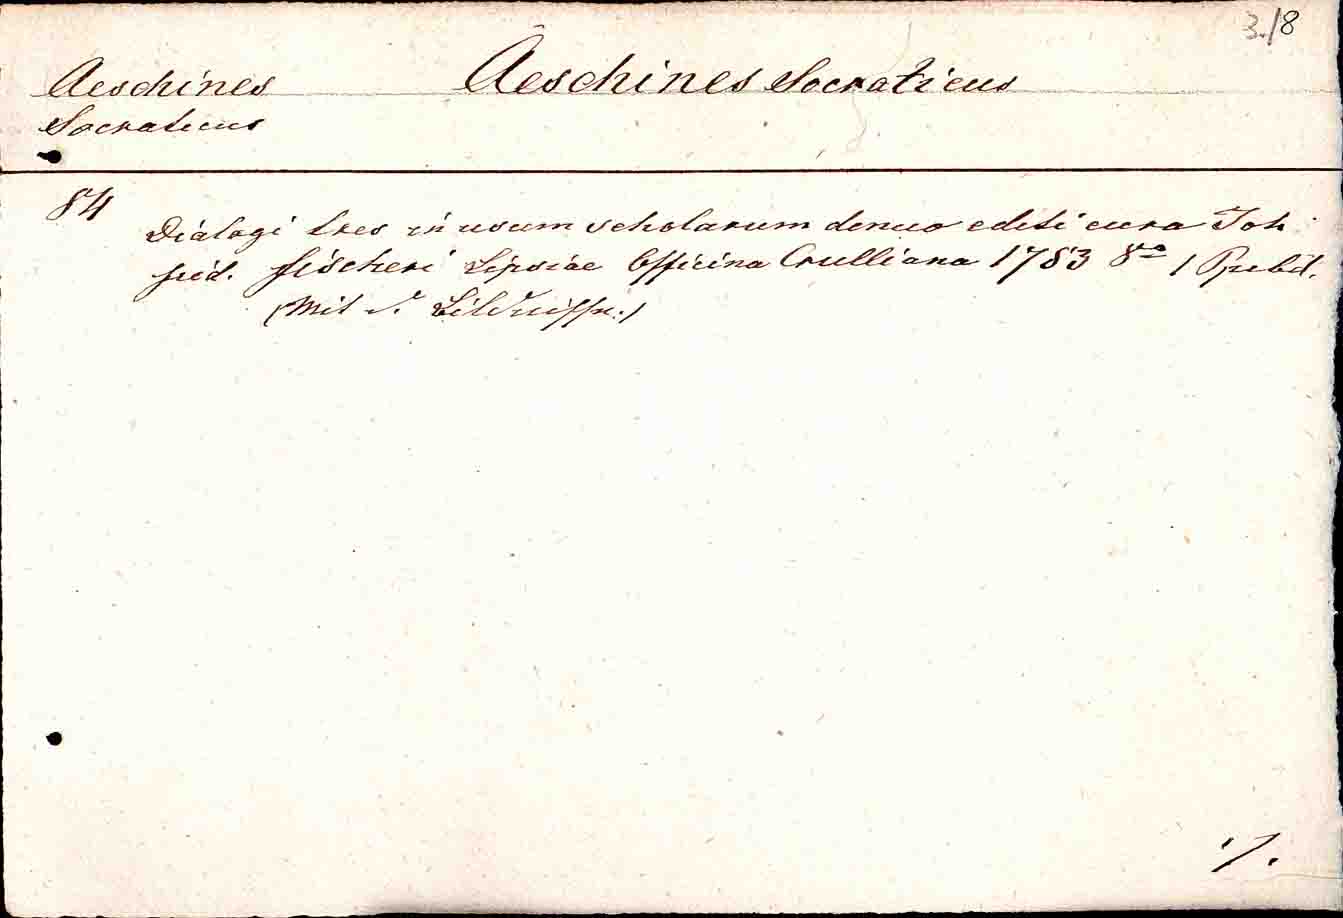 3./8
Aeschines Aeschines Socraticus
Socraticus
84
Dialogi tres in usum scholarum denuo editi cura Joh
frid. fischeri Lipsiae Officina Crulliana 1783 8º 1 Ppebd.
(Mit d. Bildnisse.)
./.